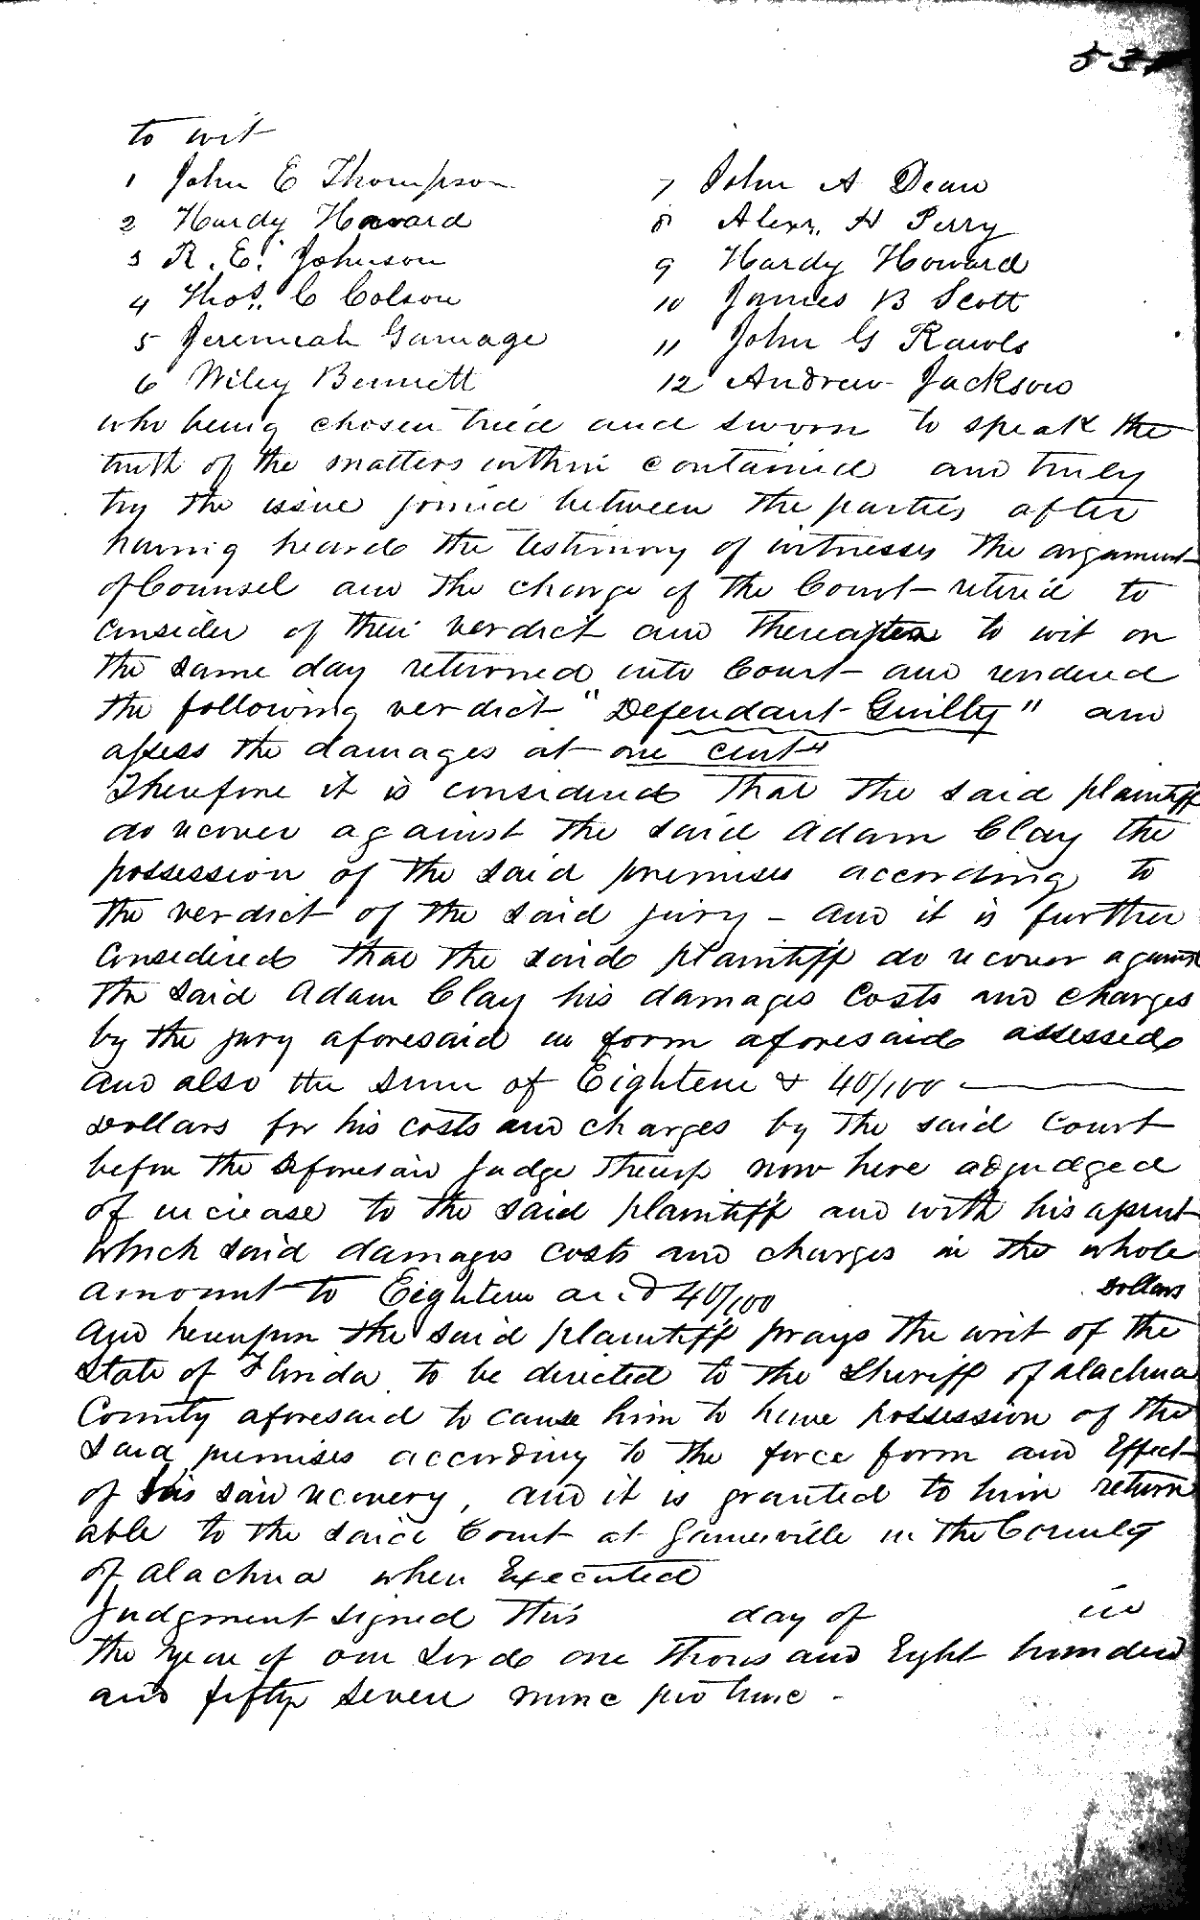 to wit
1 John E Thompson
2 Hardy Howard
3 R. E. Johnson
4 Thos. C Colson
5 Jeremiah Gamage
6 Wiley Bennett
7 John A Dean
8 Alexr. H Perry
9 Hardy Howard
10 James B Scott
11 John G Rawls
12 Andrew Jackson
who being chosen tried and sworn to speak the
truth of the matters within contained and truly
try the issue joined between the parties after
having heard the testimony of witnesses the argument
of Counsel and the charge of the Court retired to
consider of their verdict and thereafter to wit on
the same day returned into Court and rendered
the following verdict "Defendant Guilty" and
assess the damages at one cent"
Therefore it is considered that the said plaintiff
do recover against the said Adam Clay the
possession of the said premises according to
the verdict of the said jury - and it is further
considered that the said plaintiff do recover against
the said Adam Clay his damages Costs and charges
by the jury aforesaid in form aforesaid assessed
and also the sum of Eighteen & 40/100
Dollars for his costs and charges by the said Court
before the aforesaid Judge thereof now here adjudged
of increase to the said plaintiff and with his assent
which said damages costs and charges in the whole
amount to Eighteen and 40/100 Dollars
And hereupon the said plaintiff prays the writ of the
State of Florida to be directed to the Sheriff of Alachua
County aforesaid to cause him to have possession of the
said premises according to the force form and Effect
of his said recovery, and it is granted to him return
able to the said Court at Gainesville in the County
of Alachua when Executed
Judgment signed this day of in
the year of our Lord one thousand Eight hundred
and fifty seven nunc pro tunc -